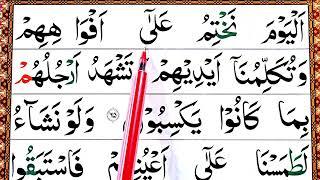 اَلْيَوْمَ نَخْتِمُ عَلٰٓى اَفْوَاهِهِمْ
وَتُكَلِّمُنَاۤ اَيْدِيْهِمْ وَتَشْهَدُ اَرْجُلُهُمْ
بِمَا كَانُوْا يَكْسِبُوْنَ ۶۵ وَلَوْ نَشَآءُ
لَطَمَسْنَا عَلٰٓى اَعْيُنِهِمْ فَاسْتَبَقُوا